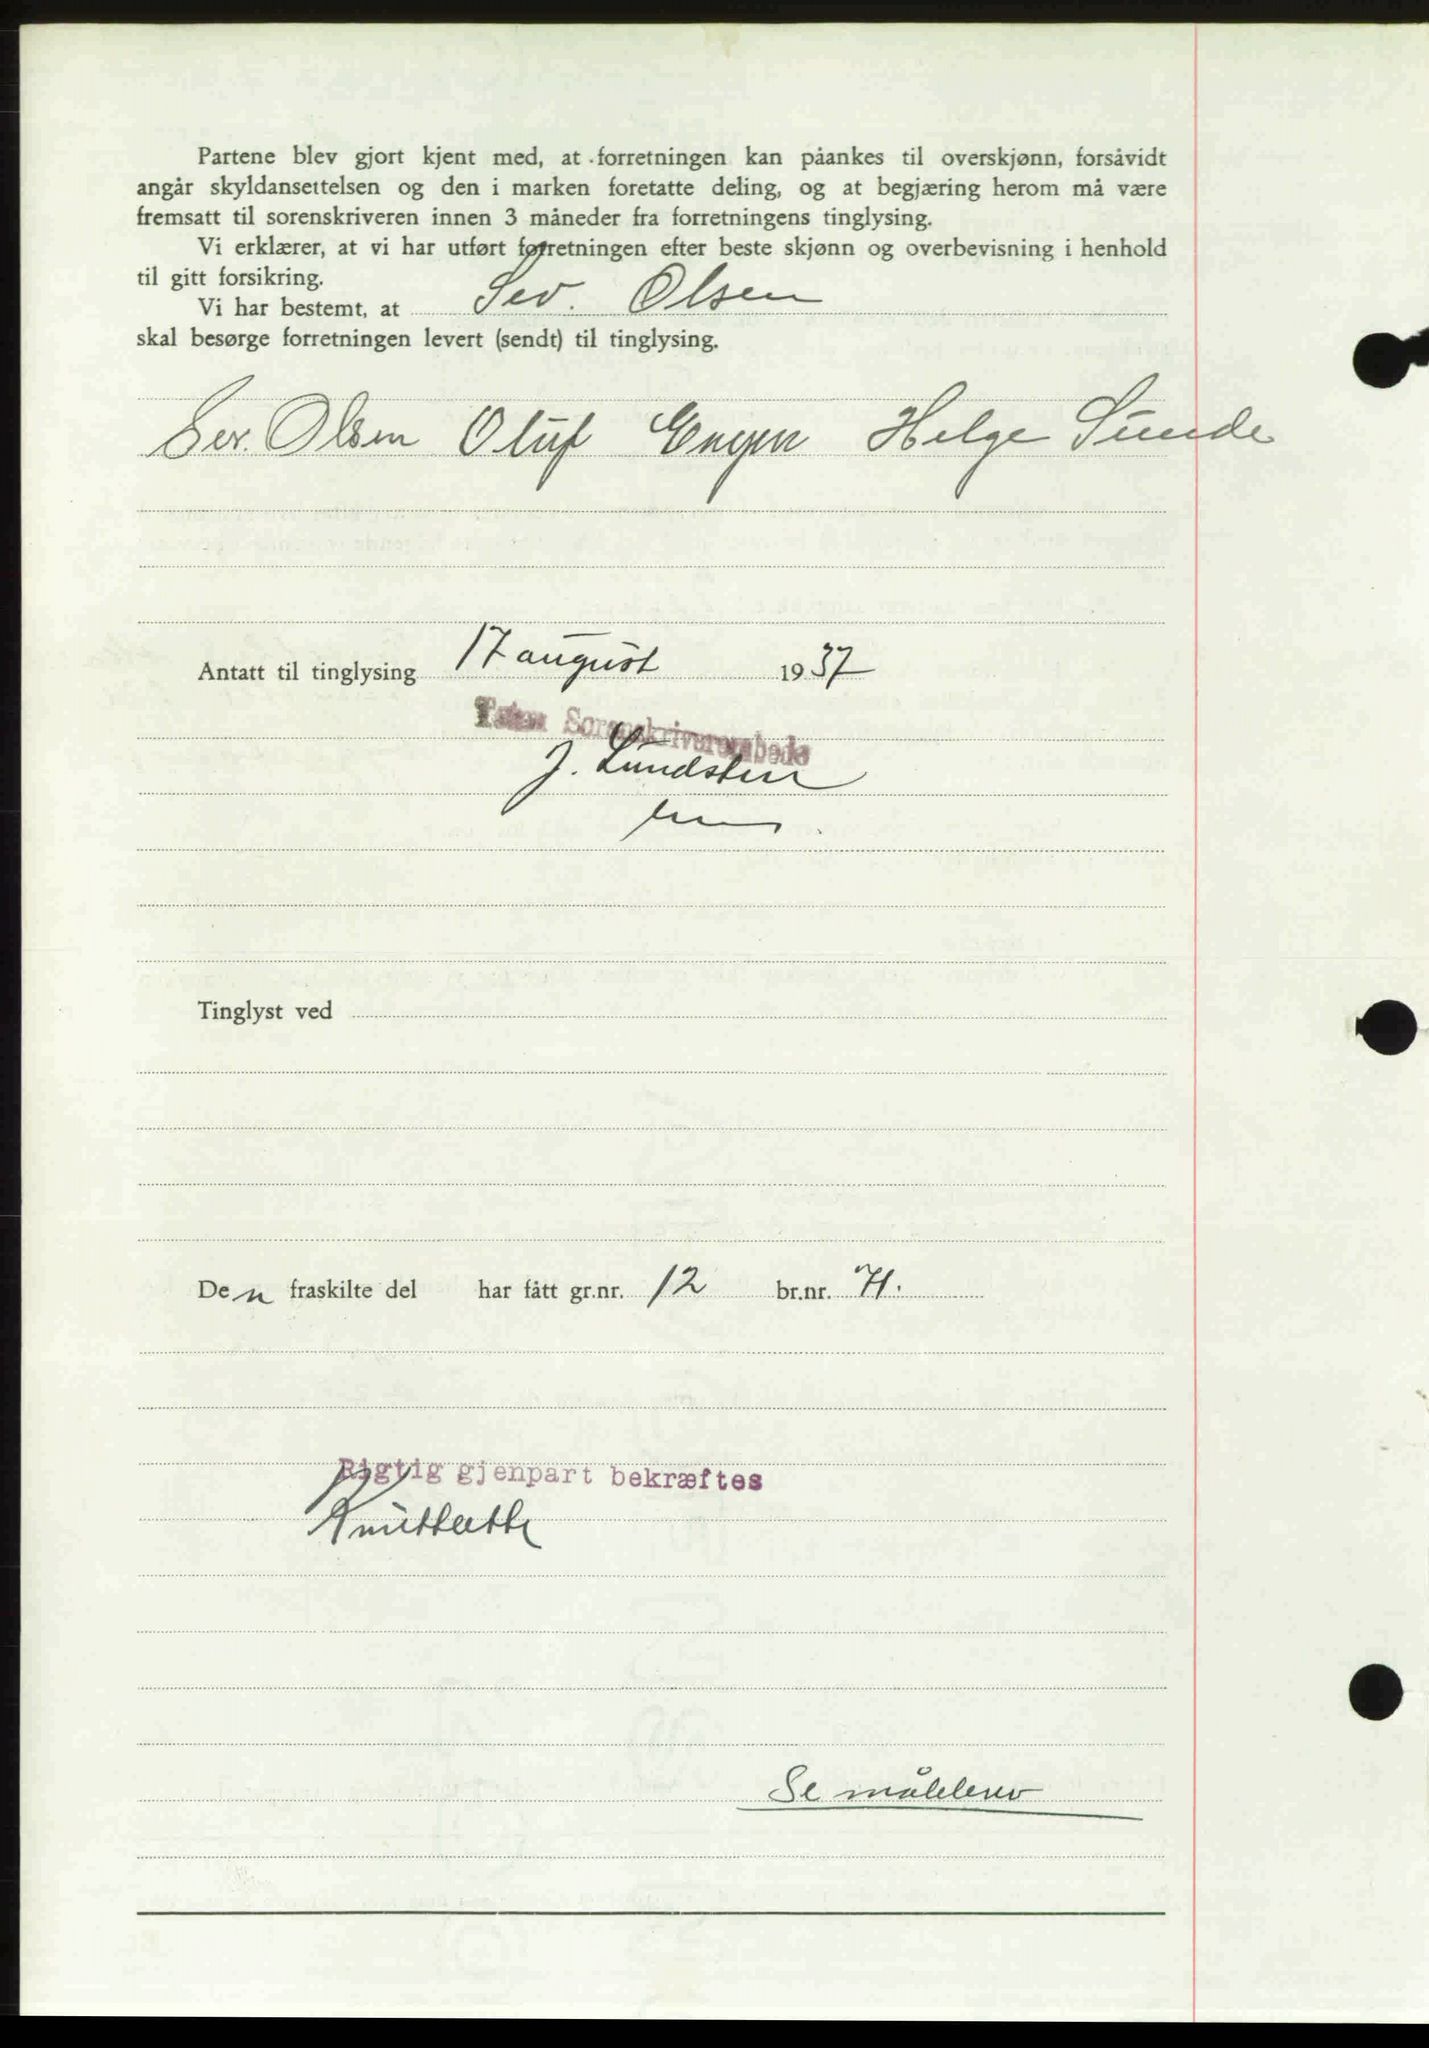 Partene blev gjort kjent med, at forretningen kan påankes til overskjønn, forsåvidt
angår skyldansettelsen og den i marken foretatte deling, og at begjæring herom må være
fremsatt til sorenskriveren innen 3 måneder fra forretningens tinglysing.
Vi erklærer, at vi har utført forretningen efter beste skjønn og overbevisning i henhold
til gitt forsikring.
Vi har bestemt, at Sev. Olsen
skal besørge forretningen levert (sendt) til tinglysing.
Sev. Olsen Oluf Engen Helge Sunde
Antatt til tinglysing 17 august 1937
Sorenskriverembede
J. Lundsten
Tinglyst ved
Den fraskilte del har fått gr.nr. 12 br.nr. 71.
Rigtig gjenpart bekræftes
Se målebrev